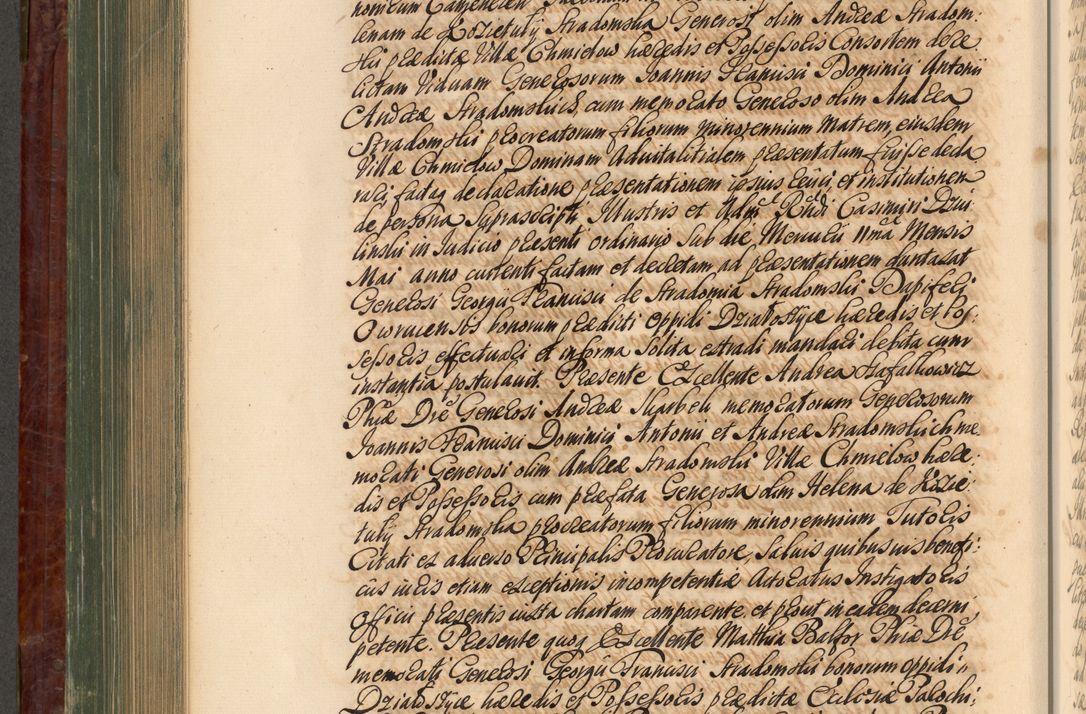 lenam de Kozietuły Stradomska Generosi olim Andreæ Stradom:
skii prædictæ Villæ Chmielow hæredis et Possessoris Consortem dere
lictam Viduam Generosorum Joannis Francisci Dominici Antonii
Andreæ Stradomskiich, cum memorato Generoso olim Andrea
Stradomskii procreatorum filiorum minorennium Matrem, eiusdem
Villæ Chmielow Dominam Advitalitialem præsentatum fuisse decla
rari, factaq declaratione præsentationem ipsius Cleri, et institutionem
de persona Suprascripti Illustris et Adm Rndi Casimiri Dziu
linskii in Judicio præsenti ordinario sub die Mercurii 11ma Mensis
Mai anno currenti factam et decretam, ad præsentationem duntaxat
Generosi Georgii Francisci de Stradomia Stradomskii Dapiferi
Owrucensis bonorum prædicti oppidi Działoszyce hæredis et Pos:
sessoris effectuari et in forma solita extradi mandari debita cum
instantia postulavit. Præsente Excellente Andrea Rafałkowicz
Phiæ Dre Generosi Andreæ Skarbek memoratorum Generosorum
Joannis Francisci Dominici Antonii et Andreæ Stradomskiich me
morati Generosi olim Andreæ Stradomskii Villæ Chmielow hære:
dis et Possessoris cum præfata Generosa olim Helena de Kozie:
tuły Stradomska procreatorum filiorum minorennium Tutoris
Citati ex adverso Principalis Procuratore, salvis quibusvis benefi:
ciis iuris etiam exceptionis incompetentiæ Actoratus Instigatoris
officii præsentis iuxta chartam comparente, et prout in eadem decerni
petente. Præsente quoq Excellente Matthia Balfor Phiæ Dre
memorati Generosi Georgii Francisci Stradomskii bonorum oppidi
Działoszyce hæredis et Possessoris prædictæ Ecclesiæ Parochi: